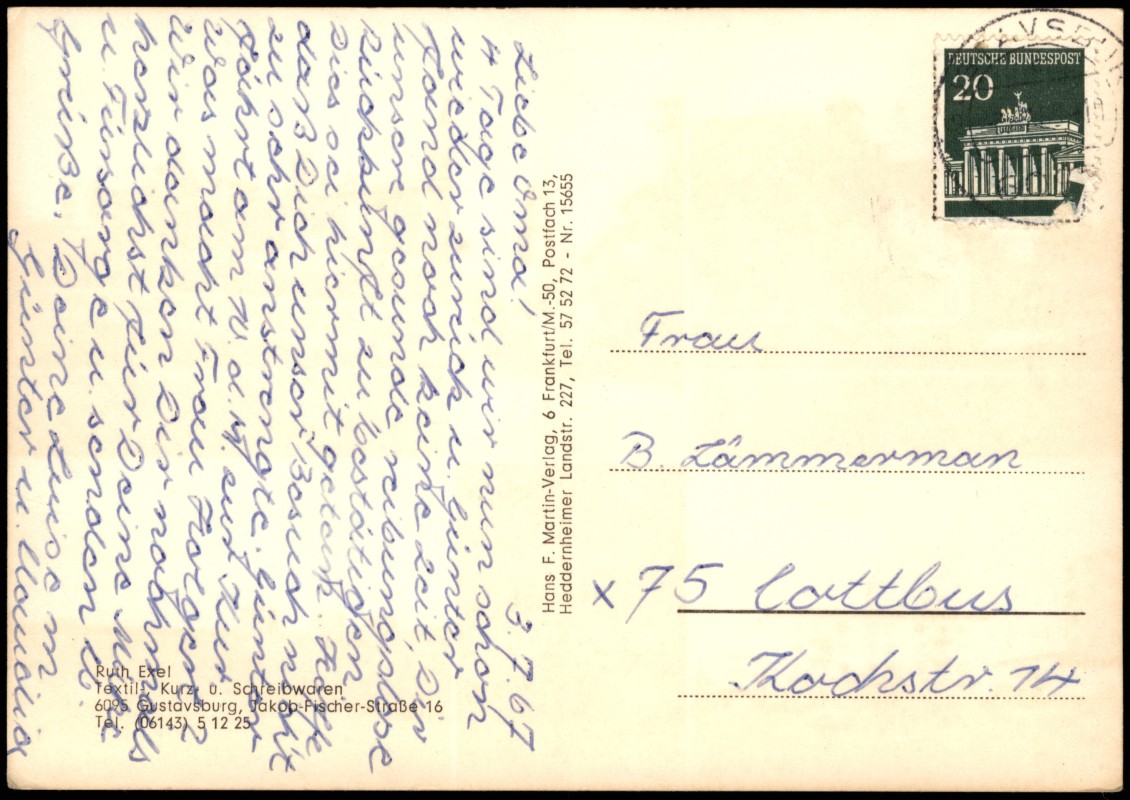 3.7.67
Liebe Oma!
4 Tage sind wir nun schon
wieder zurück u. Günter
fand noch keine Zeit, Dir
unsere gesunde reibungslose
Rückkunft zu bestätigen.
Dies sei hiermit getan. Hoffe
daß Dich unser Besuch nicht
zu sehr anstrengte. Günter
fährt am d. M. auf Kur
Was macht Frau
Wir danken Dir nochmals
herzlichst für Deine Mühe
u. Fürsorge u. senden lb.
Grüße, Deine Luise m
Günter u. Claudia
Ruth Exel
Textil-, Kurz- u. Schreibwaren
6095 Gustavsburg, Jakob-Fischer-Straße 16
Tel. (06143) 5 12 25
Hans F. Martin-Verlag, 6 Frankfurt/M.-50, Postfach 13,
Heddernheimer Landstr. 227, Tel. 57 52 72 - Nr. 15655
DEUTSCHE BUNDESPOST
20
Frau
B. Lämmerman
x 75 Cottbus
Kochstr. 14